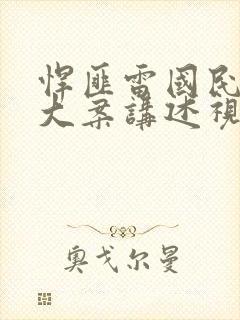 悍匪雷國民
大案講述視
奥戈尔曼